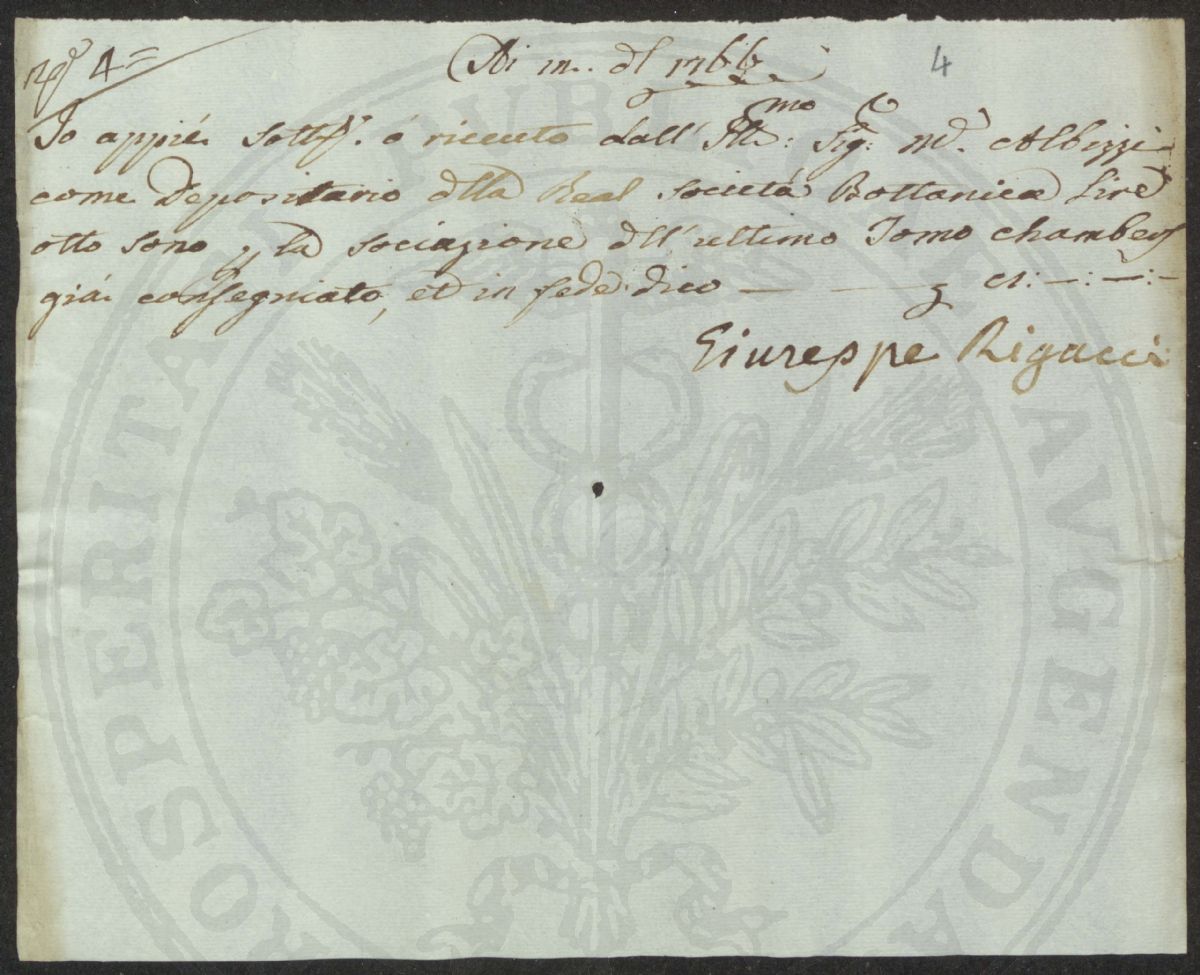 N.º 4=
Adi m.. dl 1766
4
Io appié Sottº. ó riceuto dall' Illmo: Sig: M.º Albizzi
come Depositario dlla Real Societá Bottanica Lire
otto sono p la sociazione dll' ultimo Tomo chambers
giá consegniato, et in fede dico —
Giuseppe Rigacci
PROSPERITATI PUBLICAE AVGENDAE